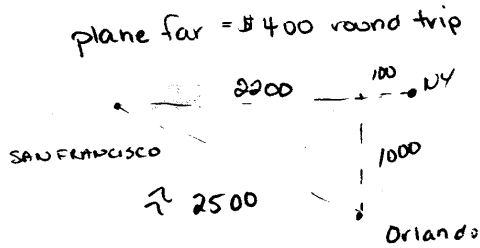 plane far = $400 round trip
100
2200
NY
SAN FRANCISCO
1000
≈ 2500
Orlando